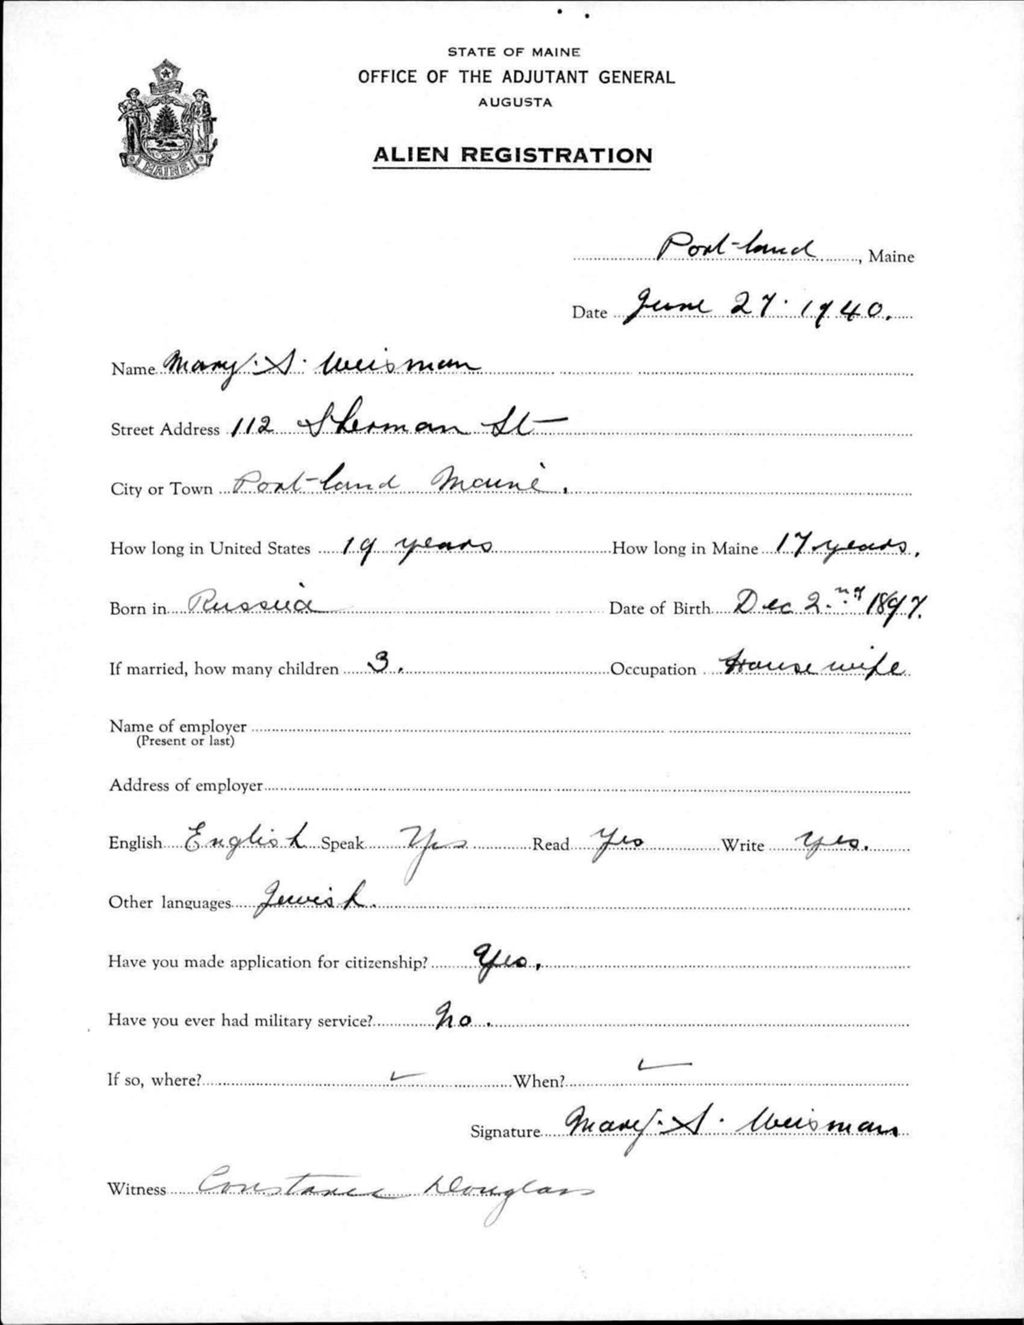 STATE OF MAINE
OFFICE OF THE ADJUTANT GENERAL
AUGUSTA
ALIEN REGISTRATION
MAINE
Port-land, Maine
Date June 27. 1940.
Name Mary. S. Weisman
Street Address 112 Sherman St
City or Town Port-land Maine.
How long in United States 19 years How long in Maine 17 years.
Born in Russia Date of Birth Dec 2.nd 1897.
If married, how many children 3. Occupation House wife
Name of employer
(Present or last)
Address of employer
English English Speak Yes Read Yes Write Yes.
Other languages Jewish.
Have you made application for citizenship? Yes.
Have you ever had military service? No.
If so, where? When?
Signature Mary. S. Weisman
Witness Constance Douglass